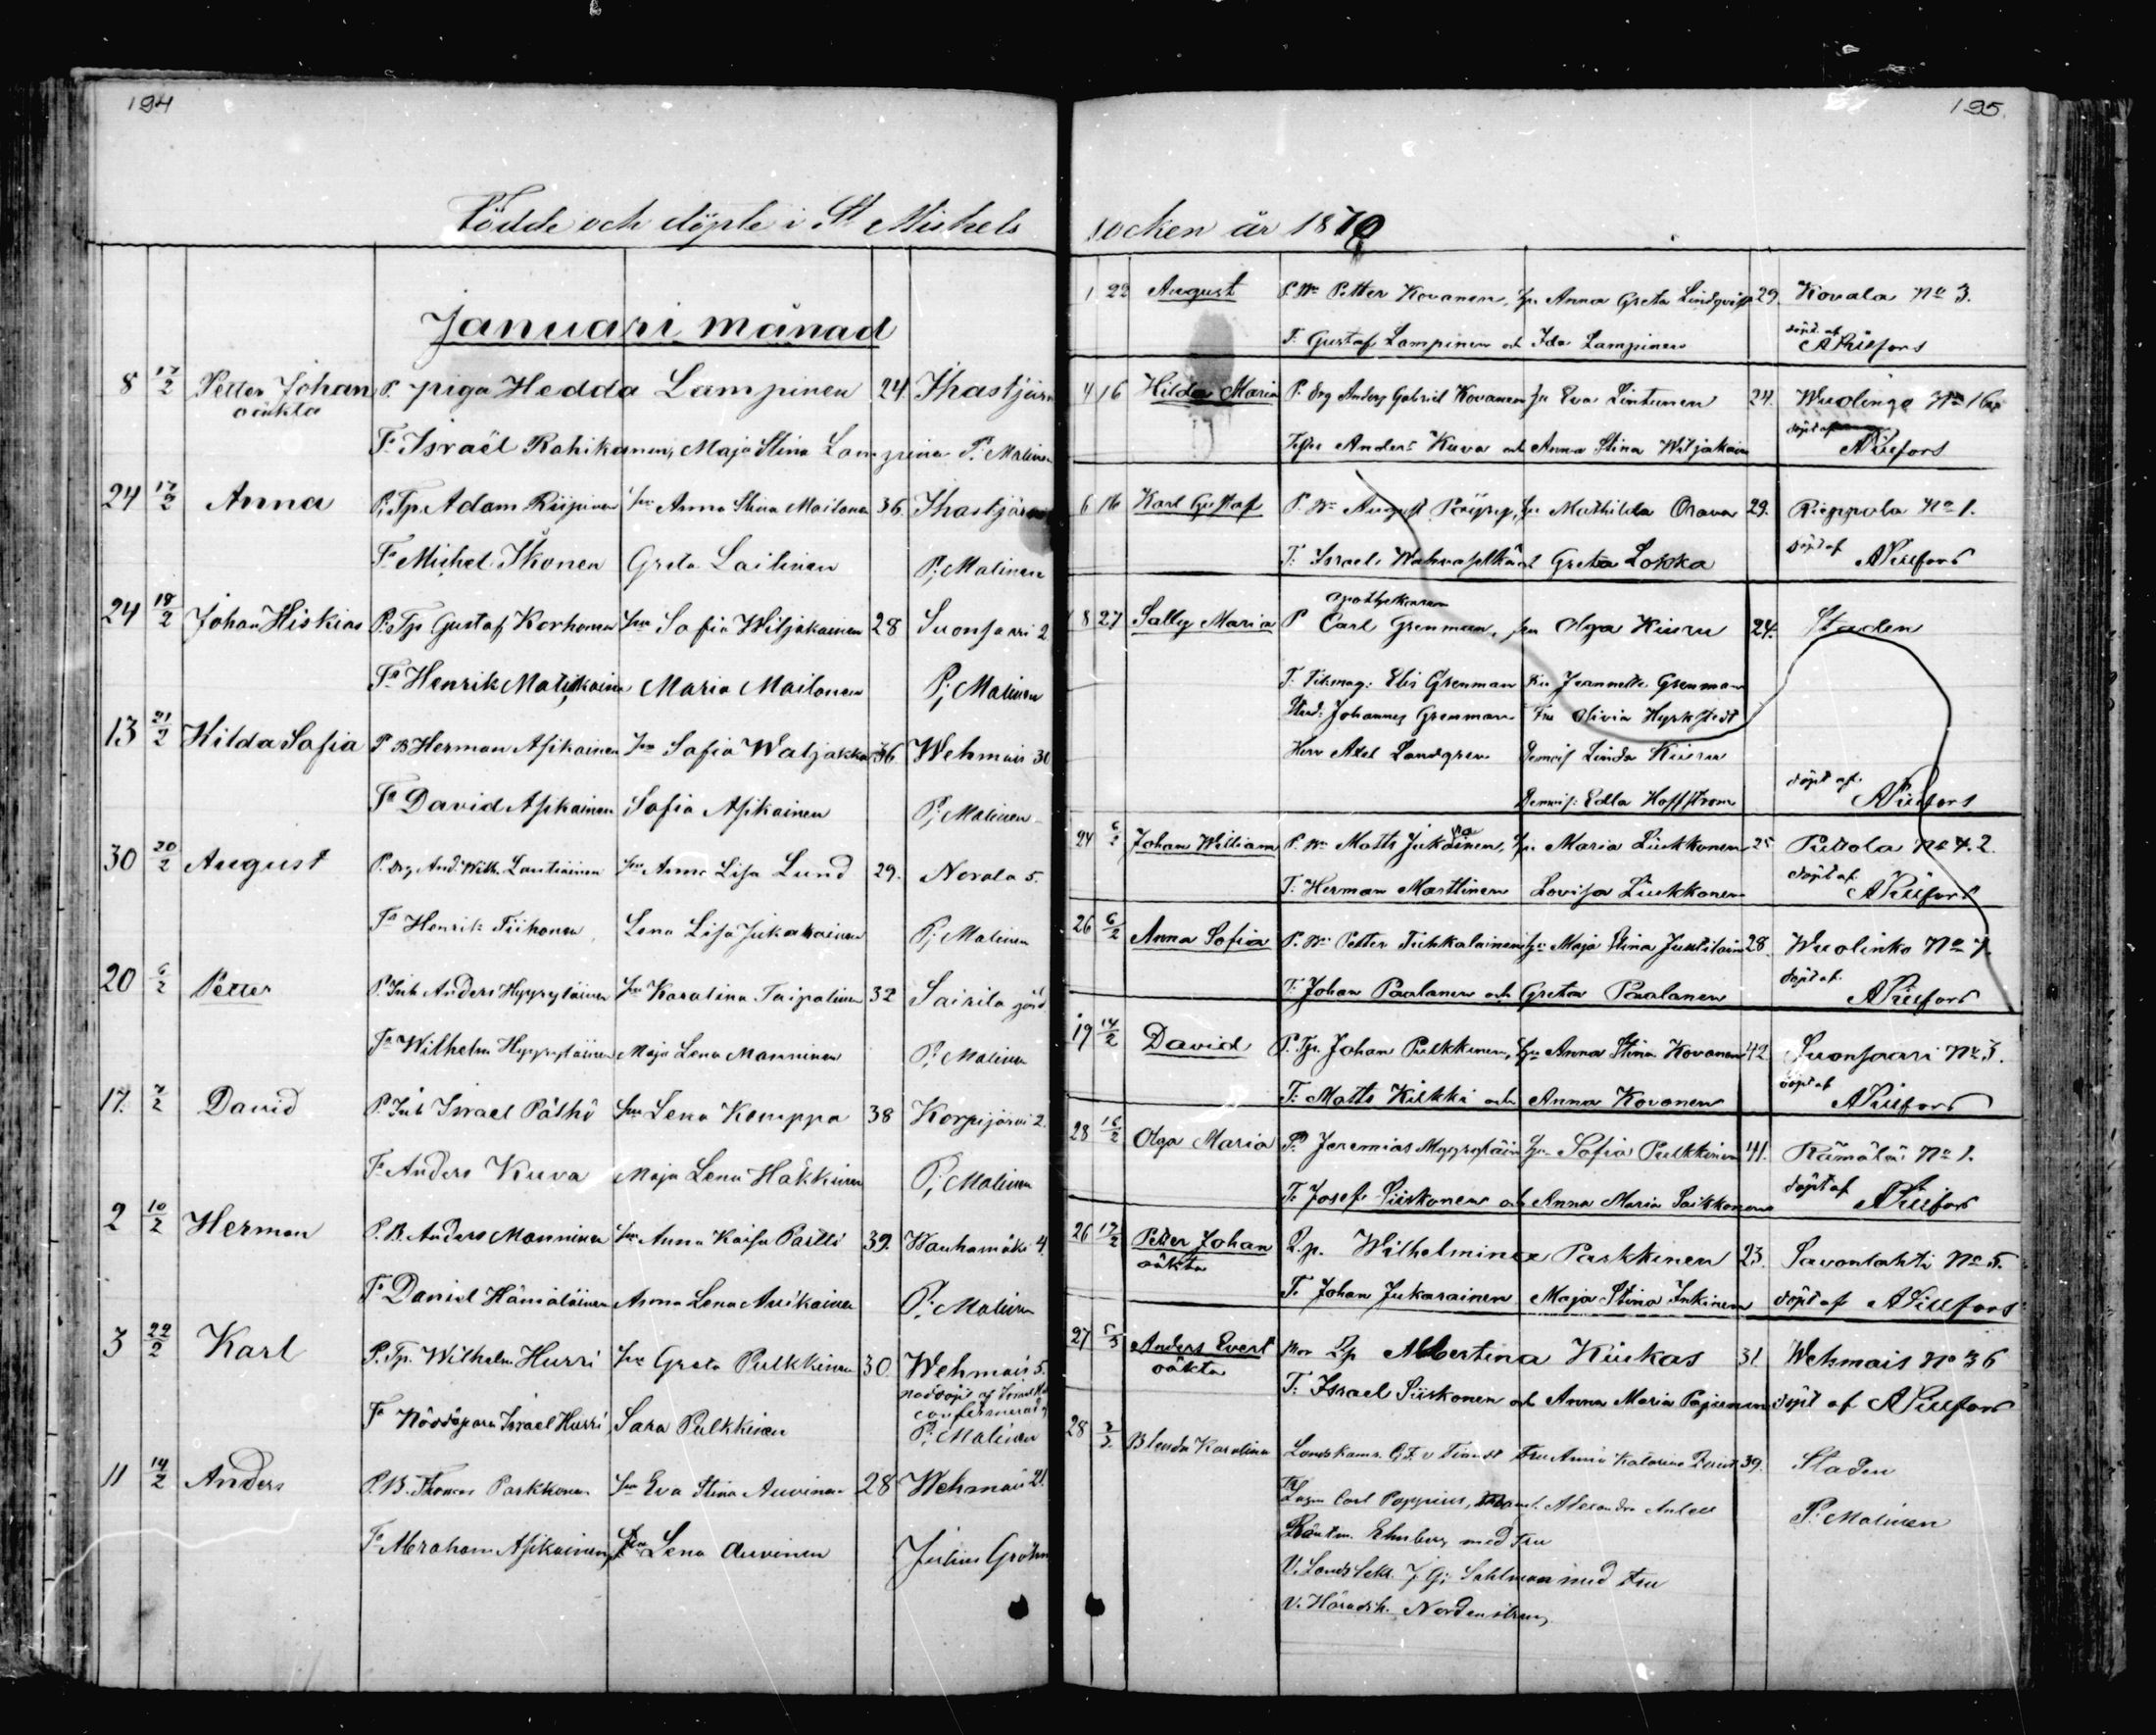 194
Födde och döpte i St Michels
Januari månad
8 17/2 Petter Johan P. piga Hedda Lampinen 24. Ihastjärvi
oäkta
F. Israël Rahikainen, Maja Stina Lampinen P. Malinen
24 17/2 Anna P. Tp. Adam Riipinen hu Anna Stina Moilanen 36. Ihastjärvi
Fr Michel Ikonen Greta Laitinen P; Malinen
24 18/2 Johan Hiskias P. Tp Gustaf Korhonen hu Sofia Wiljakainen 28 Suonsaari 2
Fr Henrik Matikainen Maria Moilanen P; Malinen
13 21/2 Hilda Sofia P B Herman Asikainen hu Sofia Waljakka 36 Wehmais 30
Fr David Asikainen Sofia Asikainen P; Malinen
30 20/2 August P. Drg And. Wilh. Lautiainen hu Anna Lisa Lund 29. Norola 5.
Fr Henrik Tiihonen Lena Lisa Jukarainen P; Malinen
20 6/2 Petter P. Inh Anders Hyyryläinen hu Karolina Taipalinen 32 Sairila gård
Fr Wilhelm Hyyryläinen Maja Lena Manninen P. Malinen
17. 7/2 David P. Inh Israel Pälhö hu Lena Kemppa 38 Korpijärvi 2.
Fr Anders Kuva Maja Lena Häkkinen P; Malinen
2 10/2 Herman P. B. Anders Manninen hu Anna Kaisa Partti 39. Wanhamäki 4.
Fr Daniel Hämäläinen Anna Lena Auvikainen P: Malinen
3 22/2 Karl P. Tp. Wilhelm Hurri hu Greta Pulkkinen 30 Wehmais 5.
nöddöpt af Israel
confirmerad af
Fr Nöddöparen Israel Hurri Sara Pulkkinen P; Malinen
11 14/2 Anders P. B. Thomas Parkkonen hu Eva Stina Auvinen 28 Wehmais 21.
Fr Abraham Asikainen, hu Lena Auvinen Julius Gröhn
195.
socken år 1870
1 22 August P. Bn Petter Kovanen, hu Anna Greta Lindqvist 29. Kovala No 3.
T: Gustaf Lampinen och Ida Lampinen döpt af A Pillfors
4 16 Hilda Maria P. Drg Anders Gabriel Kovanen hu Eva Lintunen 24. Wuolinge No 16
Anders Kuva och Anna Stina Wiljakain döpt af A Pillfors
6 16 Karl Gustaf P. Bn August Pöyry, hu Mathilda Orava 29. Rieppola No 1.
T: Israel och Greta Lokka döpt af A Pillfors
8 27 Sally Maria P Apothekaren Carl Grenman, fru Olga Kiuru 24. Staden
T: Titmag. Elis Grenman Fru Jeannette Grenman
Stud: Johannes Grenman Fru Olivia Hyrkstedt
Herr Axel Landgren Demois Linda Kiuru
Demois: Edla Hoffström döpt af A Pillfors
24 6/2 Johan William P. Bn Matts Jukarainen, hu Maria Liukkonen 25 Pittola No 7. 2.
T: Herman Marttinen Lovisa Liukkonen döpt af A Pillfors
26 6/2 Anna Sofia P. Bn Petter Tichkalainen hu Maja Stina Junttilain 28. Wuolinko No 7.
T: Johan Paalanen och Greta Paalanen döpt af A Pillfors
19 14/2 David P. Tp. Johan Pulkkinen, hu Anna Stina Kovanen 42. Suonsaari No 3.
T: Matts Kilkki och Anna Kovanen döpt af A Pillfors
28 16/2 Olga Maria P. Jeremias Myyryläin hu Sofia Pulkkinen 41. Rämälä No 1.
T. Josef Siiskonen och Anna Maria Saikkonen döpt af A Pillfors
26 17/2 Petter Johan Q.p. Wilhelmina Parkkinen 23. Savonlahti No 5.
oäkta
T. Johan Jukarainen Maja Stina Inkinen döpt af A Pillfors
27 5/3 Anders Evert Mor Qp Albertina Kiukas 31 Wehmais No 36
oäkta
T: Israel Siiskonen och Anna Maria Pajunen döpt af A Pillfors
28 3/3. Blenda Karolina Landskamr. G. F. v Fru Anna Katarina 39. Staden
Carl Poppius, Alexandra Antell P. Malinen
Räntm. Ehnberg med Fru
V. Lands Sekr. J G; Sahlman med Fru
V. Häradsh. Nordenstreng